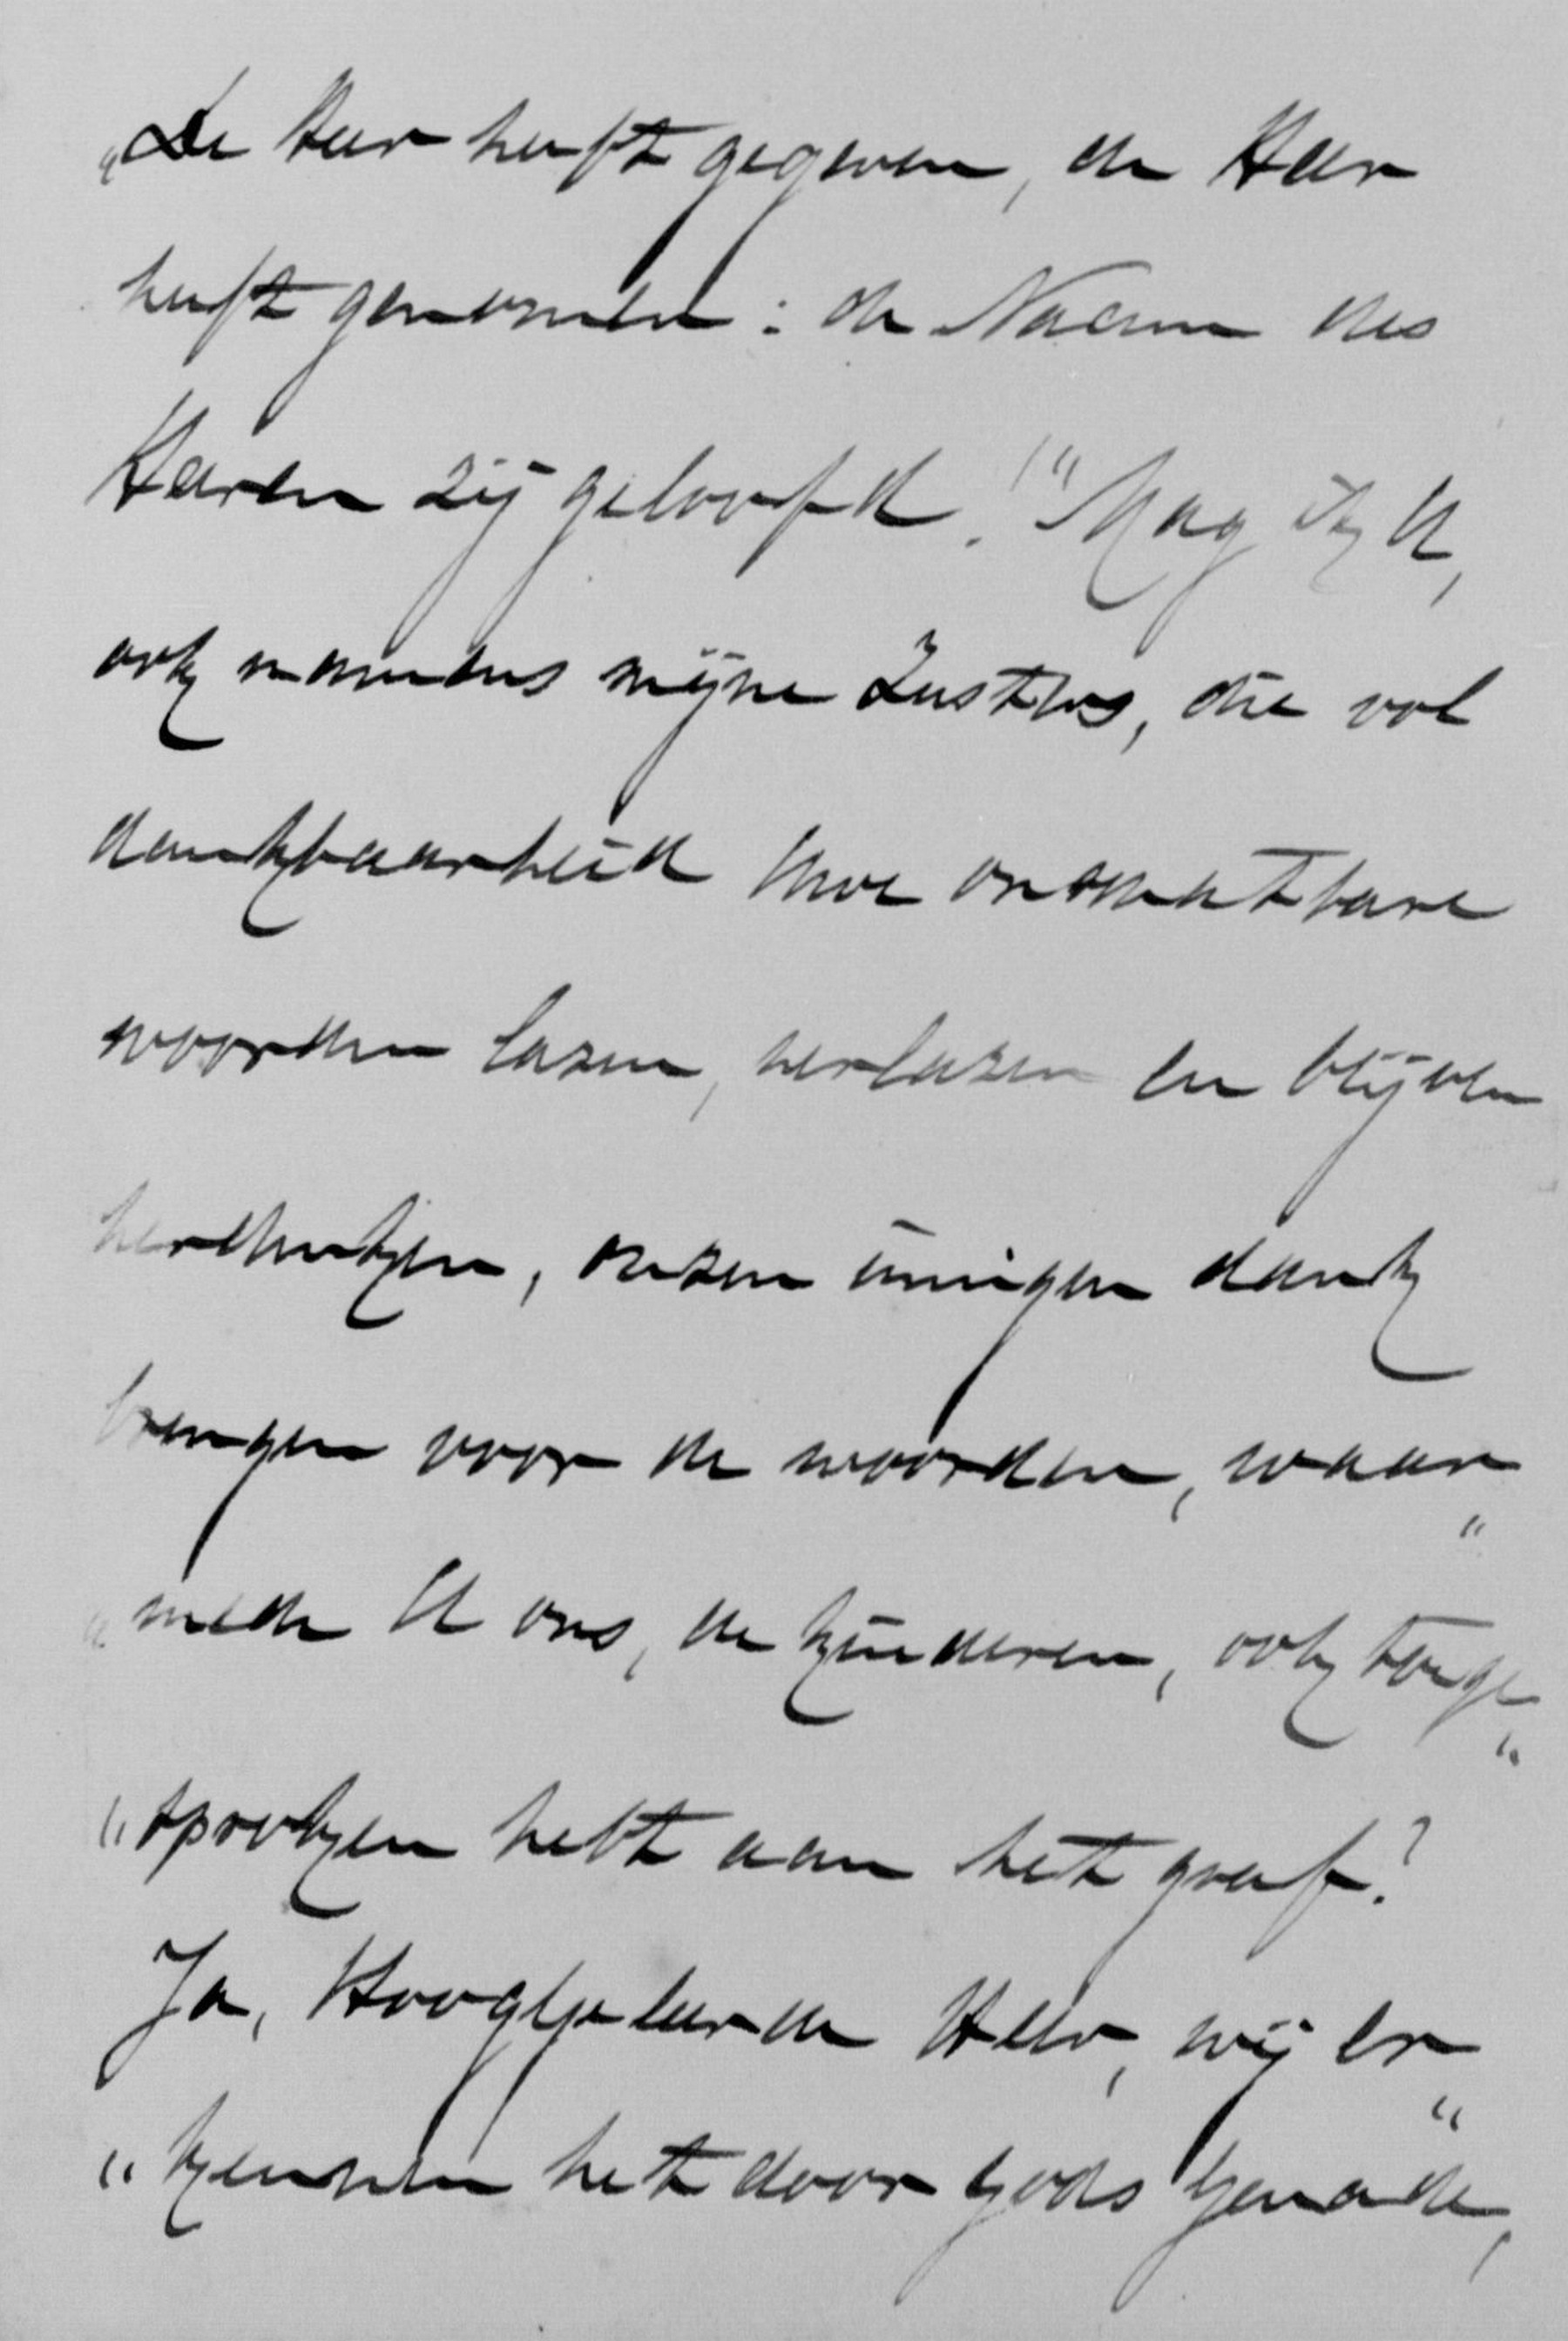 „De Heer heeft gegeven, de Heer
heeft genomen: de Naam des
Heeren zij geloofd!" Mag ik U,
ook namens mijne Zusters, die vol
dankbaarheid Uwe onschatbare
woorden lazen, herlazen en blijven
herdenken, onzen innigen dank
brengen voor de woorden, waar„
„mede U ons, de kinderen, ook toege„
„sproken hebt aan het graf?
Ja, Hooggeleerde Heer, wij er„
„kennen het door Gods genade,